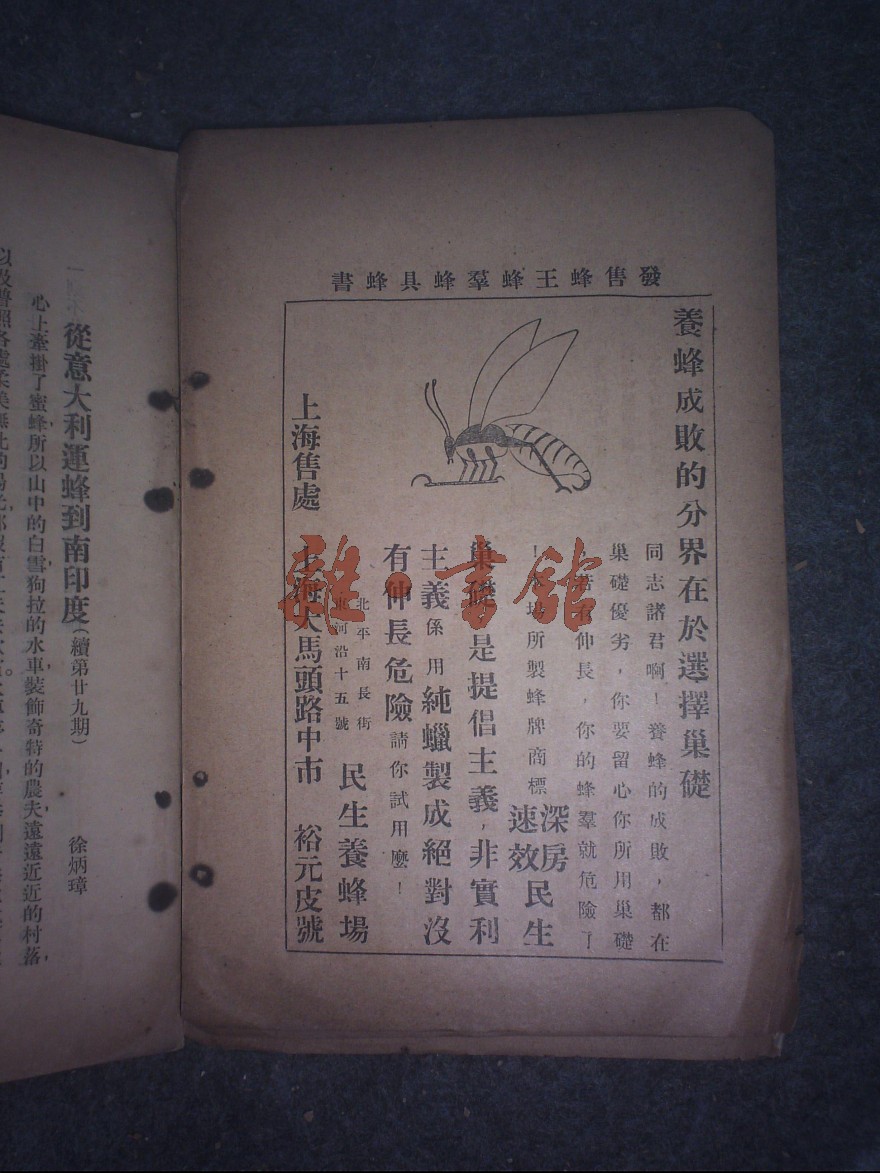 發售蜂王蜂羣蜂具蜂書
養蜂成敗的分界在於選擇巢礎
同志諸君啊！養蜂的成敗，都在
巢礎優劣，你要留心你所用巢礎
若有伸長，你的蜂羣就危險了
！本場所製蜂牌商標
深房
速效
民生
巢礎是提倡主義，非實利
主義係用純蠟製成絕對沒
有伸長危險請你試用麼！
北平南長街
東河沿十五號
民生養蜂場
上海售處
上海大馬頭路中市　裕元皮號
雜·書館
從意大利運蜂到南印度（續第廿九期）
徐炳璋
心上牽掛了蜜蜂，所以山中的白雪，狗拉的水車，裝飾奇特的農夫，遠遠近近的村落，